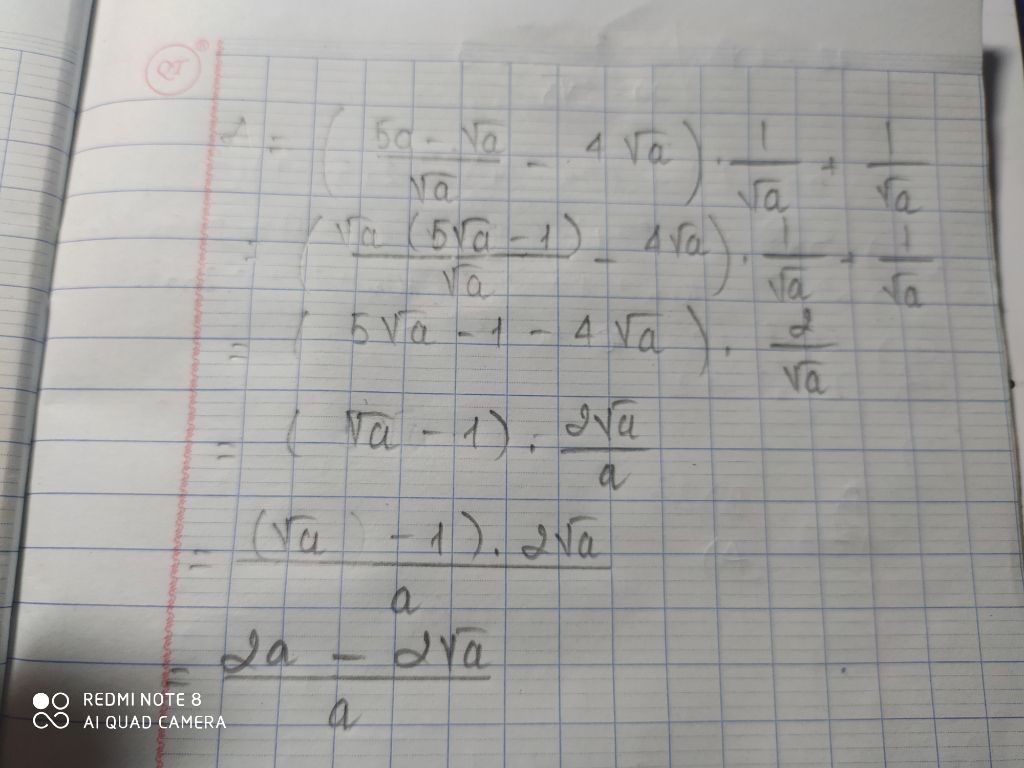 A = ( (5a - √a)/√a - 4√a ) . 1/√a + 1/√a
= ( √a (5√a - 1)/√a - 4√a ) . 1/√a + 1/√a
= ( 5√a - 1 - 4√a ) . 2/√a
= ( √a - 1) . 2√a/a
= (√a - 1) . 2√a / a
= (2a - 2√a)/a
REDMI NOTE 8
AI QUAD CAMERA